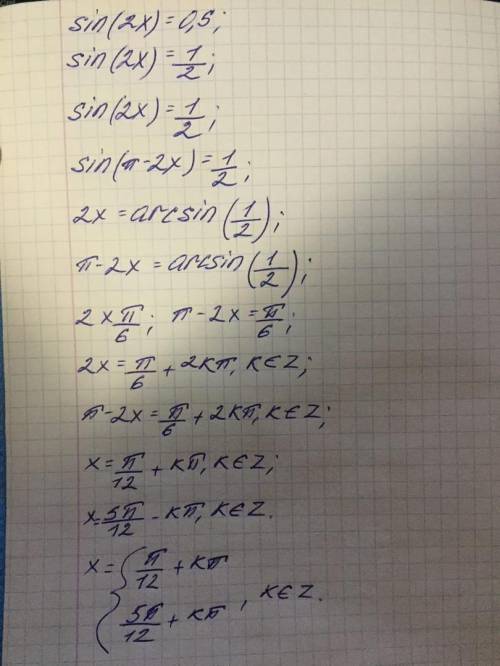 sin(2x)=0,5;
sin(2x)=1/2;
sin(2x)=1/2;
sin(π-2x)=1/2;
2x=arcsin(1/2);
π-2x=arcsin(1/2);
2x π/6; π-2x=π/6;
2x=π/6+2kπ, k∈Z;
π-2x=π/6+2kπ, k∈Z;
x=π/12+kπ, k∈Z;
x=5π/12-kπ, k∈Z.
x={π/12+kπ
5π/12+kπ, k∈Z.